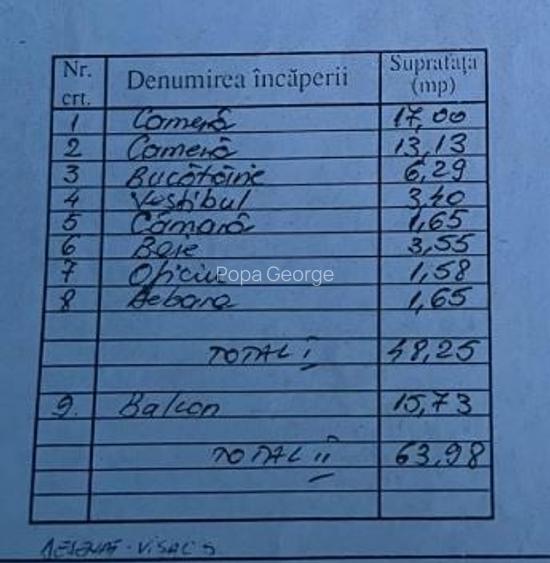 Nr. crt. Denumirea încăperii Suprafața (mp)
1 Cameră 17,00
2 Cameră 13,13
3 Bucătărie 6,29
4 Vestibul 3,40
5 Cămară 1,65
6 Baie 3,55
7 Oficiu 1,58
Popa George
8 Debara 1,65
TOTAL I 48,25
9. Balcon 15,73
TOTAL II 63,98